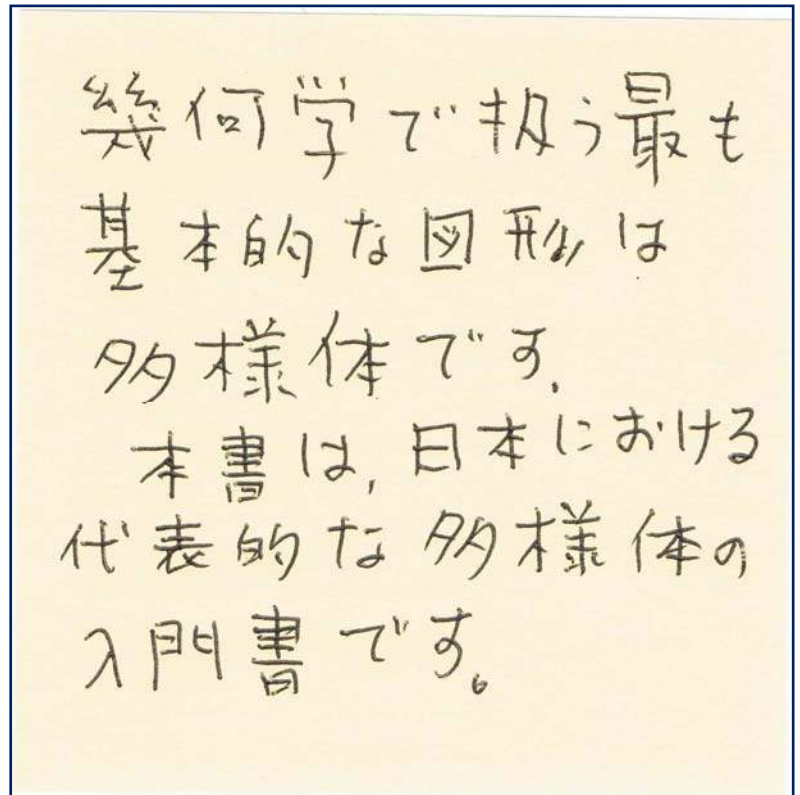 幾何学で扱う最も
基本的な図形は
多様体です.
本書は,日本における
代表的な多様体の
入門書です。